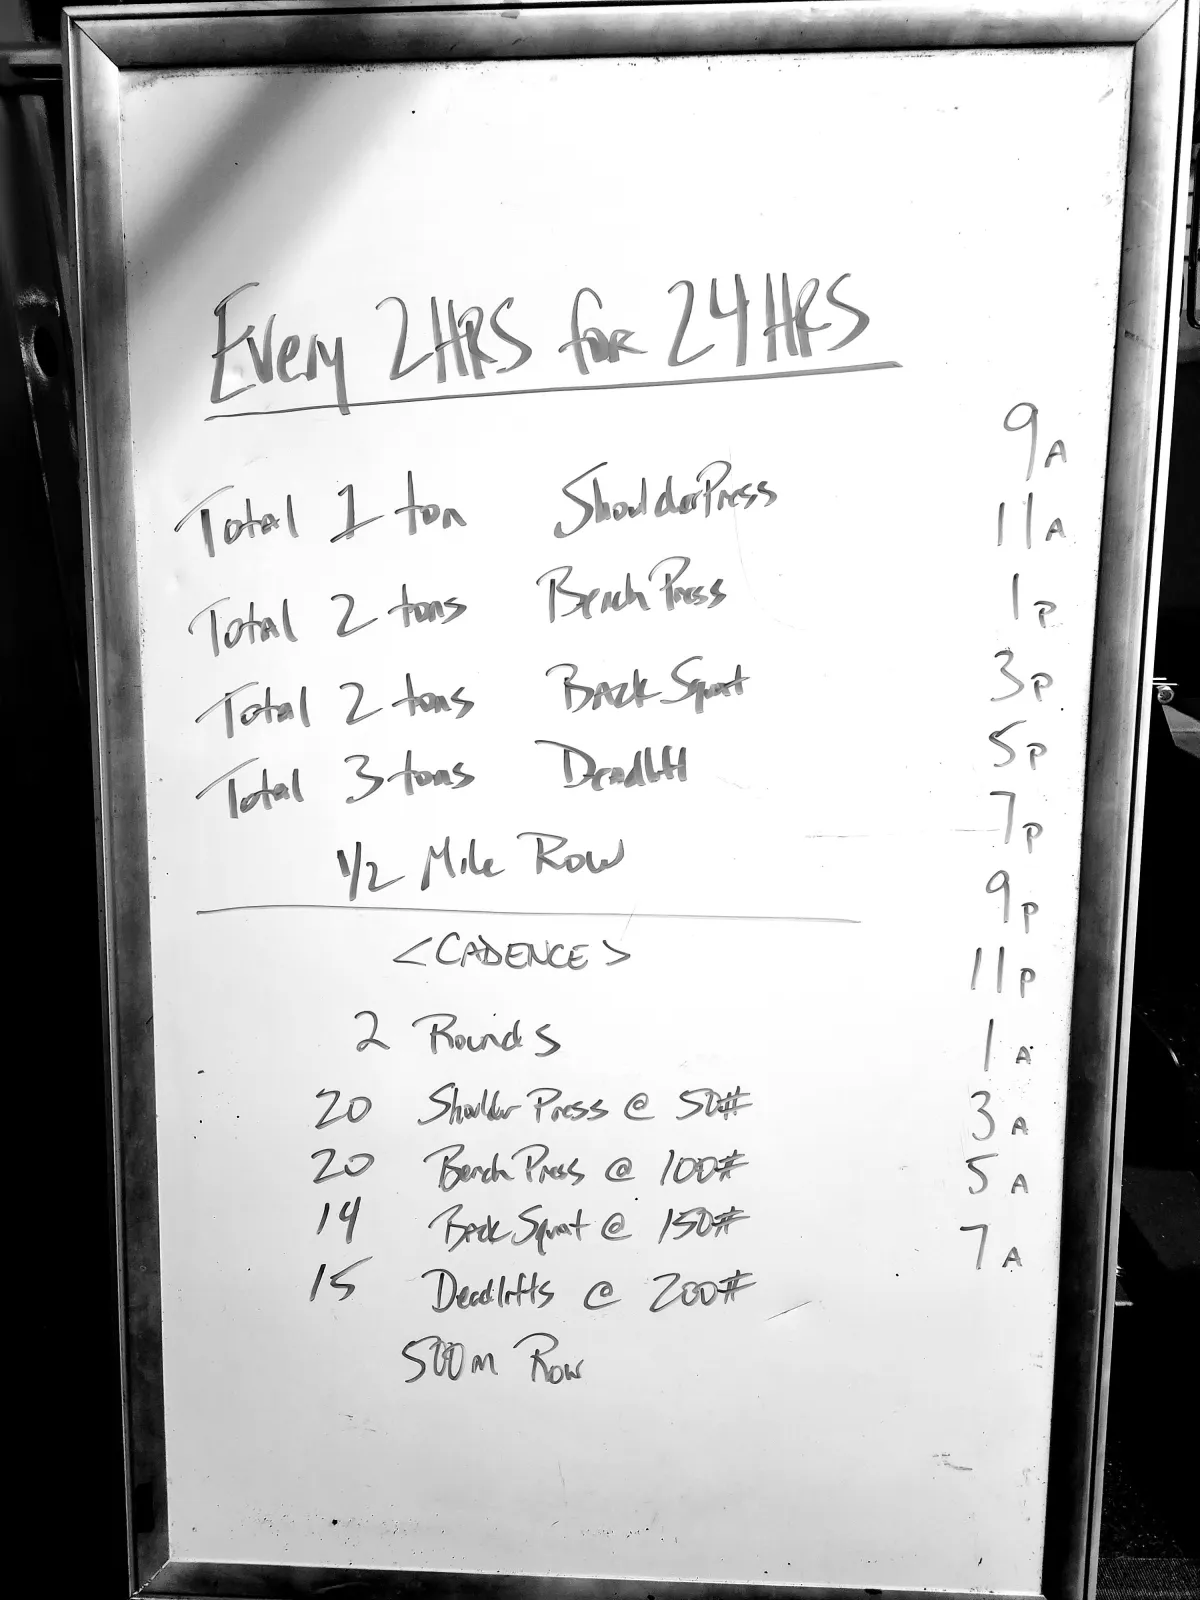 Every 2 HRS for 24 HRS
Total 1 ton Shoulder Press
Total 2 tons Bench Press
Total 2 tons Back Squat
Total 3 tons Deadlift
1/2 Mile Row
<CADENCE>
2 Rounds
20 Shoulder Press @ 50#
20 Bench Press @ 100#
14 Back Squat @ 150#
15 Deadlifts @ 200#
500m Row
9A
11A
1P
3P
5P
7P
9P
11P
1A
3A
5A
7A